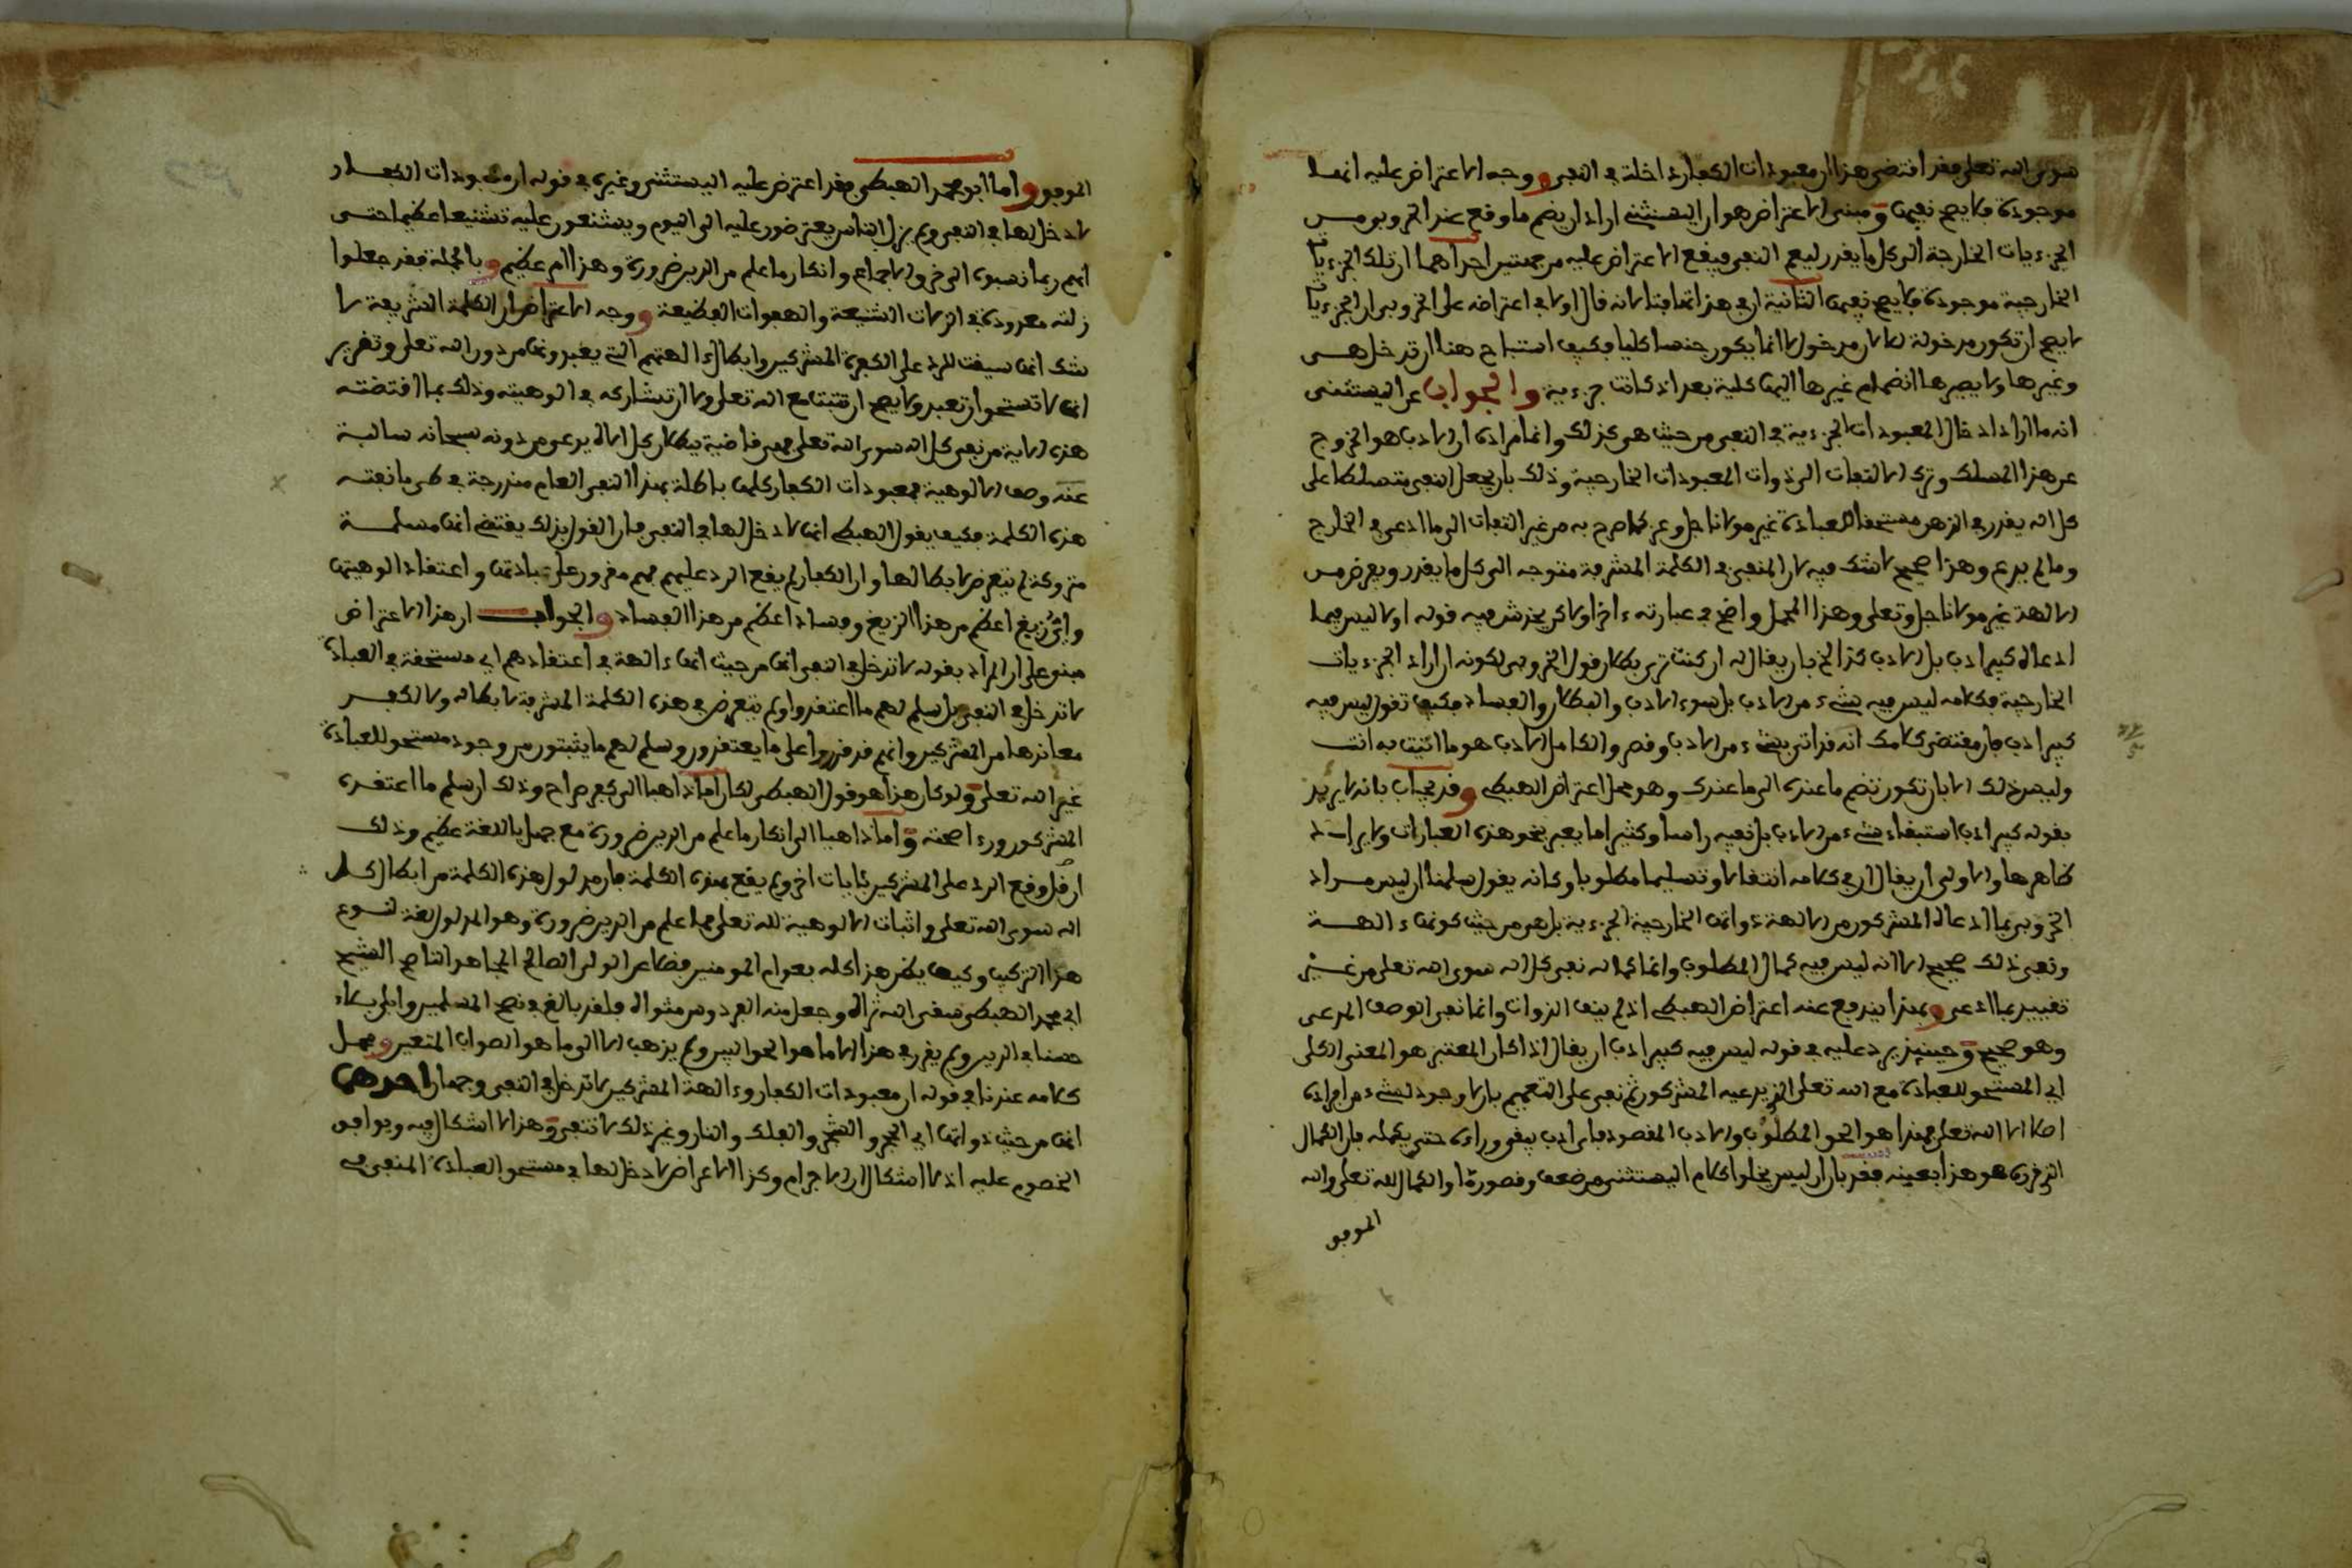 سوى الله تعلى فقد اقتضى هذا ان معبودات الكفار داخلة في النفي ووجه الاعتراض عليه انها
موجودة فلا يصح نفيها ومبنى الاعتراض هو ان اليستثني اراد ان يضم ما وقع عند الخروبي من
الجزءيات الخارجة الى كل ما يقدر ليعم النفي فيقع الاعتراض عليه من جهتين احداهما ان تلك الجزءيات
الخارجية موجودة فلا يصح نفيها الثانية ان في هذا تهافتا لانه قال اولا في اعتراضه على الخروبي ان الجزءيات
لا يصح ان تكون مدخولة للا لان مدخول لا انما يكون جنسا كليا فكيف استباح هنا ان تدخل هي
وغيرها ولا يصيرها انضمام غيرها اليها كلية بعد اذ كانت جزءية والجواب عن اليستثني
انه ما اراد ادخال المعبودات الجزءية في النفي من حيث هي كذلك وانما مراده ان الادب هو الخروج
عن هذا المسلك وترك الالتفات الى ذوات المعبودات الخارجية وذلك بان يجعل النفي متسلطا على
كل اله يقدر في الذهن مستحقا للعبادة غير مولانا جل وعز كما صرح به من غير التفات الى ما ادعي في الخارج
وما لم يدع وهذا صحيح لا شك فيه لان المنفي في الكلمة المشرفة متوجه الى كل ما يقدر ويفرض من
الالهة غير مولانا جل وتعلى وهذا المحمل واضح في عبارته ءاخرا ولاكن يخدش فيه قوله اولا ليس فيما
ادعاه كبير ادب بل الادب كذا الخ بان يقال له ان كنت تريد بطلان قول الخروبي لكونه اراد الجزءيات
الخارجية فكلامه ليس فيه شيء من الادب بل سوء الادب والبطلان والفساد فكيف تقول ليس فيه
كبير ادب فان مقتضى كلامك انه قد اتى بشيء من الادب وقصر والكامل الادب هو ما اتيت به انت
وليس ذلك الا بان تكون تضم ما عنده الى ما عندك وهو محل اعتراض الهبطي وقد يجاب بانه لا يريد
بقوله كبير ادب استبقاء شيء من الادب بل نفيه راسا وكثيرا ما يعبر بنحو هذه العبارات ولا يراد
ظاهرها والاولى ان يقال ان في كلامه انتقالا وتسليما مطلوبا وكانه يقول سلمنا ان ليس مراد
الخروبي بما ادعاه المشركون من الالهة ذواتها الخارجية الجزءية بل هي من حيث كونها ءالهة
ونفي ذلك صحيح الا انه ليس فيه كمال المطلوب وانما كماله نفي كل اله سوى الله تعلى من غير
تقييد بما ادعي وبهذا يندفع عنه اعتراض الهبطي اذ لم ينف الذوات وانما نفى الوصف المدعى
وهو صحيح وحينئذ يرد عليه في قوله ليس فيه كبير ادب ان يقال اذا كان المعتبر هو المعنى الكلي
اي المستحق للعبادة مع الله تعلى الذي يدعيه المشركون ثم نفى على التعميم بان لا وجود لشيء من افراده
اصلا الا الله تعلى فهذا هو الحق المطلوب والادب المقصود فاي ادب يبقى وراءه حتى يكمله فان الكمال
الذي قرره هو هذا بعينه فقد بان ان ليس يخلوا كلام اليستثني من ضعف وقصور او الكمال لله تعلى والله
الموفق
الموفق واما ابو محمد الهبطي فقد اعترض عليه اليستثني وغيره في قوله ان معبودات الكفار
لا دخل لها في النفي ولم يزل الناس يعترضون عليه الى اليوم ويشنعون عليه تشنيعا عظيما حتى
انهم ربما نسبوه الى خرق الاجماع وانكار ما علم من الدين ضرورة وهذا امر عظيم وبالجملة فقد جعلوا
زلته معدودة في الزلات الشنيعة والهفوات الفظيعة ووجه الاعتراض ان الكلمة الشريفة لا
شك انها سيقت للرد على الكفرة المشركين وابطال ءالهتهم التي يعبدونها من دون الله تعلى وتقرير
انها لا تستحق ان تعبد ولا يصح ان تثبت مع الله تعلى ولا ان تشاركه في الوهيته وذلك بما اقتضته
هذه الاية من نفي كل اله سوى الله تعلى فهي قاضية ببطلان كل اله يدعى من دونه سبحانه سالبة
عنه وصف الالوهية فمعبودات الكفار كلها باطلة بهذا النفي العام مندرجة في طي ما نفته
هذه الكلمة فكيف يقول الهبطي انها لا دخل لها في النفي فان القول بذلك يقتضي انها مسلمة
متروكة لم يتعرض لابطالها وان الكفار لم يقع الرد عليهم فهم مقرون على عبادتها واعتقاد الوهيتها
واي زيغ اعظم من هذا الزيغ وفساد اعظم من هذا الفساد والجواب ان هذا الاعتراض
مبني على ان المراد بقوله لا تدخل في النفي انها من حيث انها ءالهة في اعتقادهم اي مستحقة في العبادة
لا تدخل في النفي بل سلم لهم ما اعتقدوا ولم يتعرض في هذه الكلمة المشرفة لابطاله ولا لكفر
معاندها من المشركين وانهم قد قرروا على ما يعتقدون وسلم لهم ما يثبتون من وجود مستحق للعبادة
غير الله تعلى ولو كان هذا هو قول الهبطي لكان اما ذاهبا الى كفر صراح وذلك ان سلم ما اعتقده
المشركون ورءا صحته واما ذاهبا الى انكار ما علم من الدين ضرورة مع جهل باللغة عظيم وذلك
ان قال وقع الرد على المشركين بايات اخر ولم يقع بهذه الكلمة فان مدلول هذه الكلمة من ابطال كل
اله سوى الله تعلى واثبات الالوهية لله تعلى مما علم من الدين ضرورة وهو المدلول لغة لنوع
هذا التركيب وكيف يظن هذا كله بعوام المومنين فضلا عن الولي الصالح المجاهد الناصح الشيخ
ابي محمد الهبطي سقى الله ثراه وجعل منه الفردوس مثواه فلقد بالغ في نصح المسلمين وابلى بلاء
حسنا في الدين ولم يقرر في هذا الا ما هو الحق البين ولم يذهب الا الى ما هو الصواب المتعين ومحمل
كلامه عندنا في قوله ان معبودات الكفار وءالهة المشركين لا تدخل في النفي وجهان احدهما
انها من حيث ذواتها اي الحجر والشجر والفلك والنار وغير ذلك لا تنتفي وهذا لا اشكال فيه ويوافق
الخصوم عليه اذ لا اشكال ان الاجرام وكذا الاعراض لا دخل لها في مستحق العبادة المنفي في